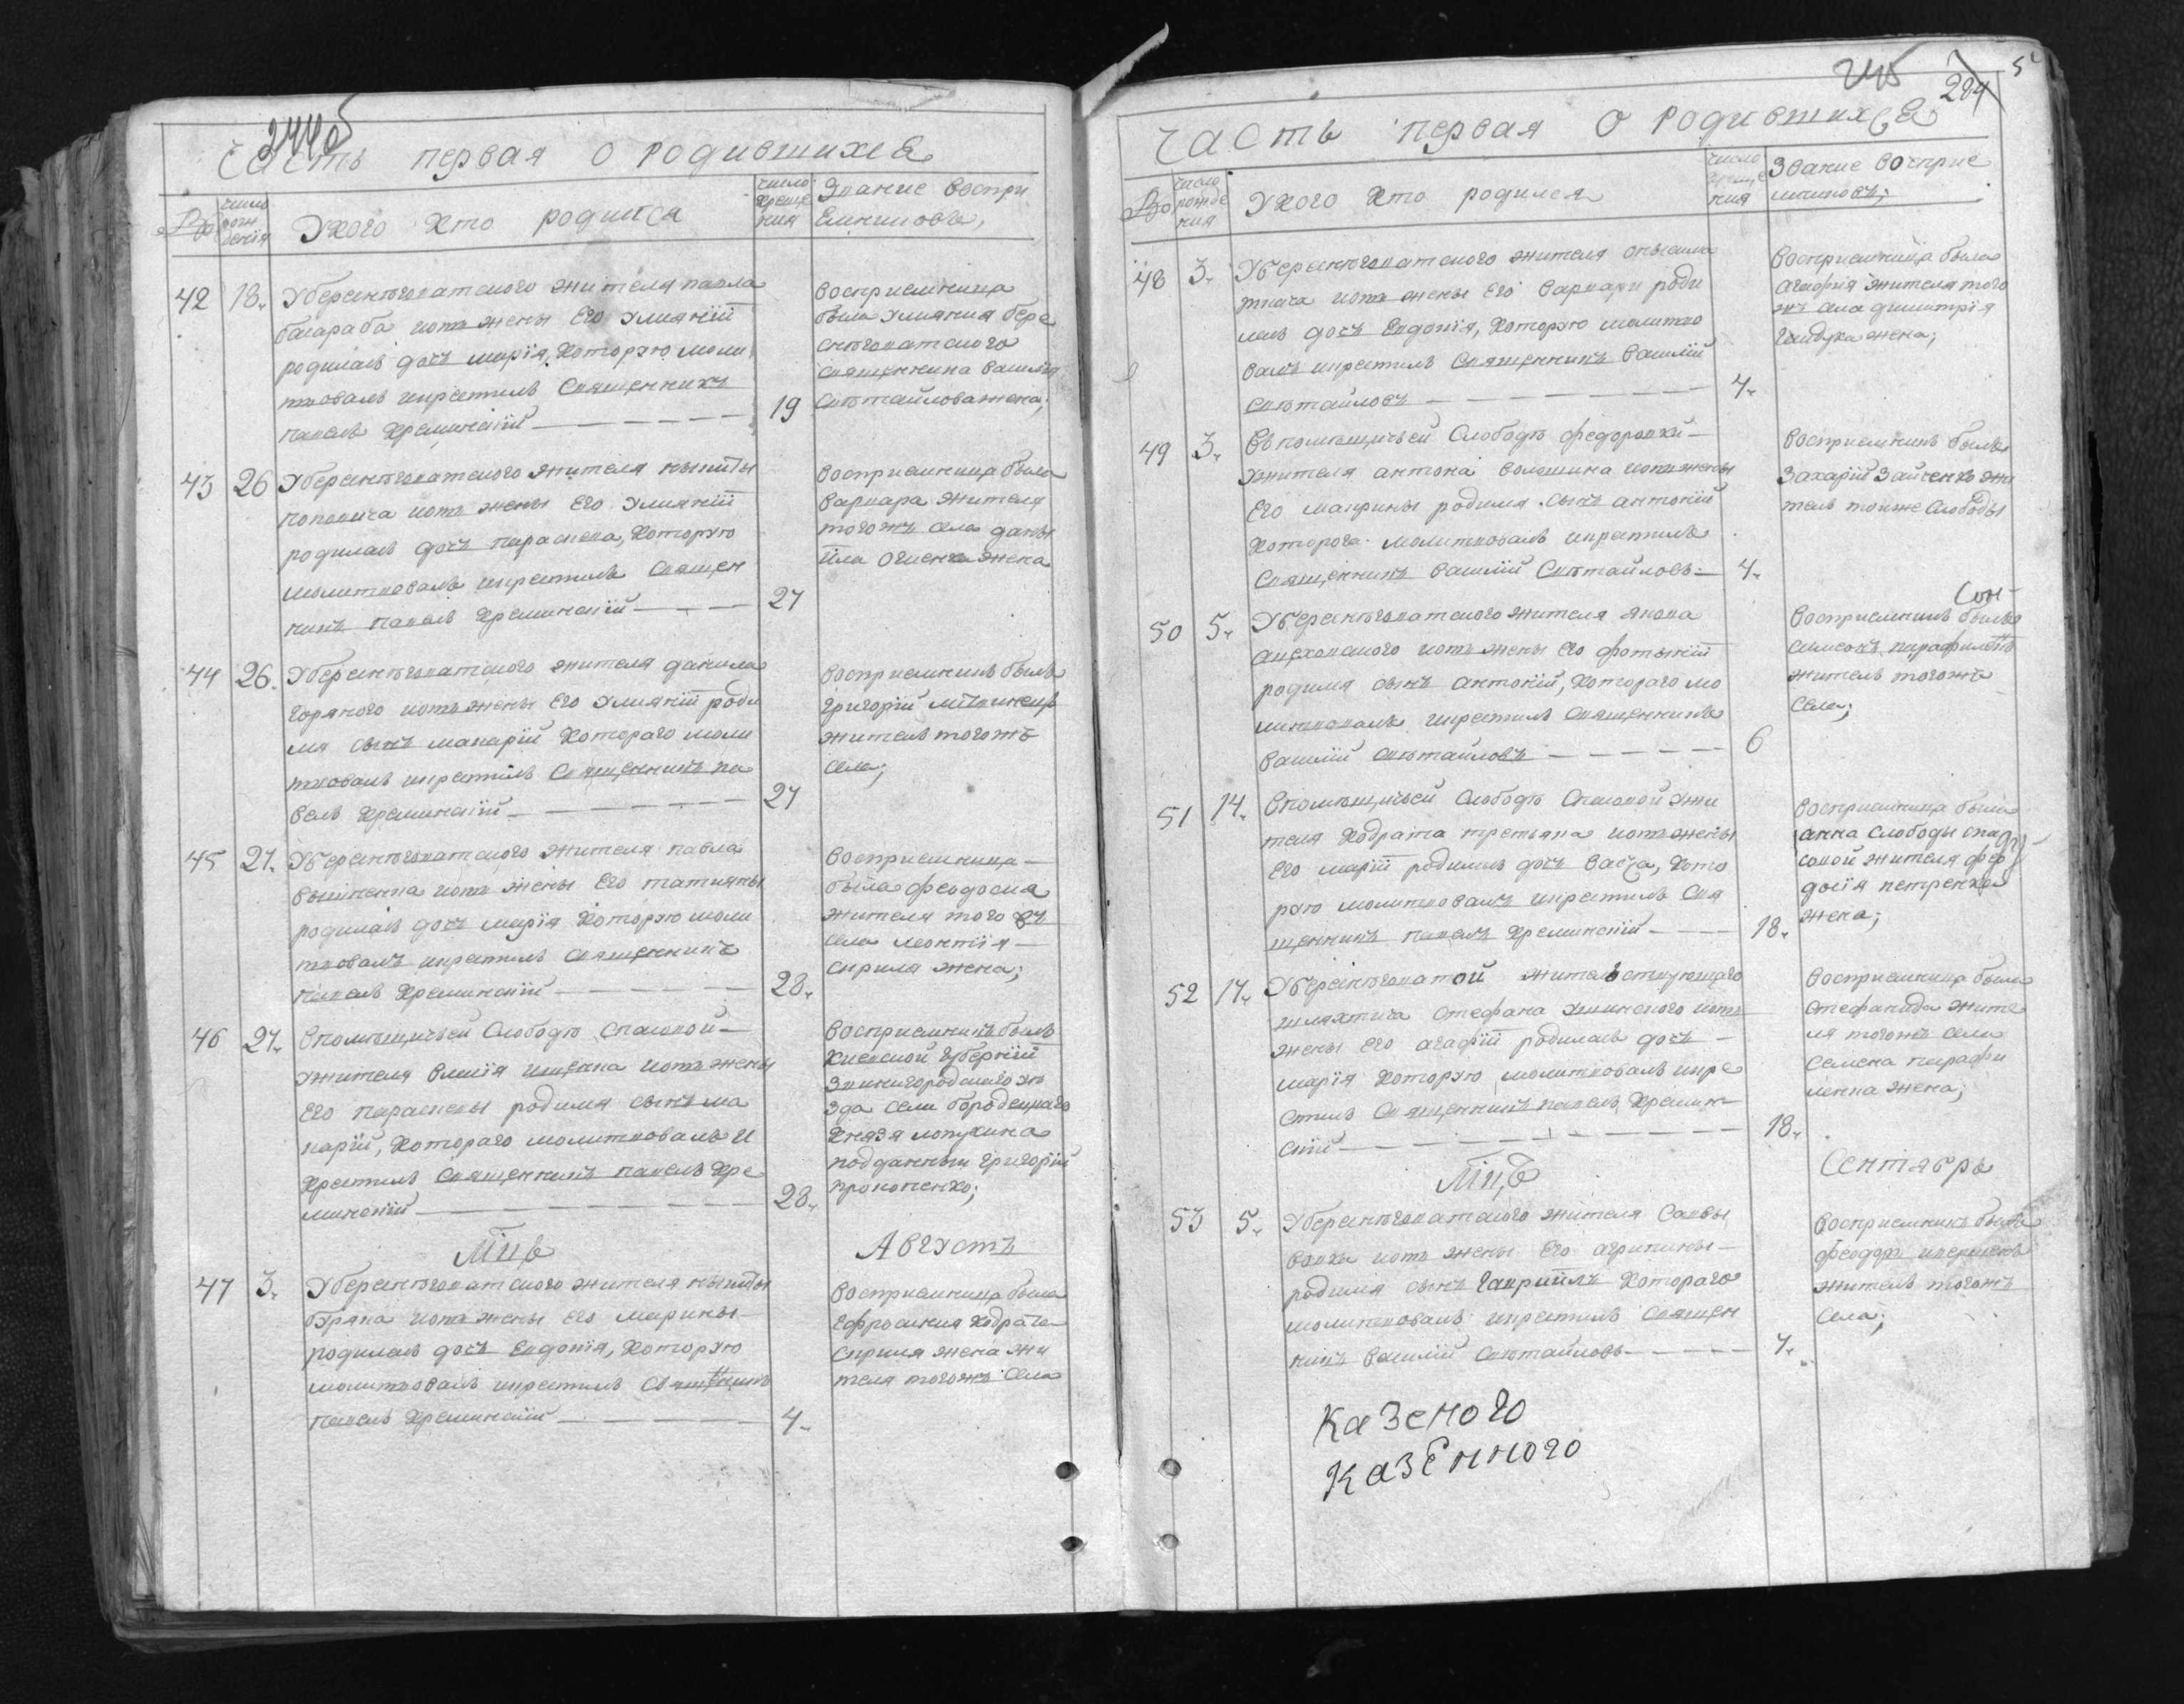 244об
Часть первая о родившихся
№
число рож дения
У кого кто родился
число креще ния
Звание воспри
емниковъ,
42 18. У береснеговатского жителя павла
басараба иотъ жены Его Улияніи
родилась дочь марія, которую моли
твовалъ икрестилъ Священникъ
павелъ Креминскій 19
восприемница
была Улияния бере
снеговатского
священника васылія
Светайлова жена;
43 26 У береснеговатского жителя
поповича иотъ жены Его Улияніи
родилась дочь параскева, которую
молитвовалъ икрестилъ Священ
никъ павелъ Креминскій 27
восприемница была
варвара жителя
тогожъ села даны
ила жена
44 26. У береснеговатского жителя данила
горяного иотъ жены Его Улияніи роди
лся сынъ макарій которого моли
твовалъ икрестилъ Священникъ па
велъ Креминскій 27
восприемникъ былъ
григорій
жителъ тогожъ
села;
45 27. У береснеговатского жителя павла
иотъ жены Его татияны
родилась дочь марія которую моли
твовалъ икрестилъ Священникъ
павелъ Креминскій 28.
восприемница
была феодосия
жителя того жъ
села леонтія
скирпя жена;
46 27. Впомещичьей Слободе Спасовой
жителя иотъ жены
Его параскевы родился сынъ ма
карій, которого молитвовалъ и
крестилъ Священникъ павелъ Кре
минскій 28.
восприемникъ былъ
киевской губерніи
Звинигородского уе
зда села
князя лопухина
подданный григорій
прокопенко;
Мць Августъ
47 3. У береснеговатского жителя
буряка иотъ жены Его марины
родилась дочь Евдокія, которую
молитвовалъ икрестилъ Священникъ
павелъ Креминскій 4
восприемница была
Ефросиния кодрата
жена жи
теля тогожъ села
245 284 5
Часть первая о родившихся
№
число рожде ния
У кого кто родился
число креще ния
Звание восприе
мниковъ;
48 3. У береснеговатского жителя
иотъ жены Его варвари роди
лась дочь Евдокія, которую молитво
валъ икрестилъ Священникъ василій
Светайловъ 4.
восприемница была
агафія жителя того
жъ села димитрія
гайдука жена;
49 3. Въ помещичьей Слободе федоровки
жителя антона волошина иотъ жены
Его марины родился сынъ антоній
которого молитвовалъ икрестилъ
Священникъ василій Светайловъ 4.
восприемникъ былъ
Захарій Зайченко жи
тель тоиже Слободы
50 5. У береснеговатского жителя якова
иотъ жены Его фотыніи
родился сынъ антоній, которого мо
литвовалъ икрестилъ Священникъ
василій Светайловъ 6
восприемникъ былъ
симеонъ
жителъ тогожъ
села;
51 14. Впомещичьей Слободе Спасовой жи
теля кодрата третьяка иотъ жены
Его маріи родилась дочь васса, кото
рую молитвовалъ икрестилъ Свя
щенникъ павелъ Креминскій 18.
восприемница была
анна Слободы спа
совой жителя фео
досія петренка
жена;
52 17. У береснеговатой жительствующаго
шляхтича Стефана иотъ
жены Его агафіи родилась дочь
марія которую молитвовалъ икре
стилъ Священникъ павелъ Кремин
скій 18.
восприемница была
Стефанида жите
ля тогожъ села
Семена
жена;
Мць Сентябрь
53 5. У береснеговатского жителя Саввы
иотъ жены Его агрипины
родился сынъ гавріилъ которого
молитвовалъ икрестилъ Священ
никъ василій Светайловъ 7.
восприемникъ былъ
феодоръ
жителъ тогожъ
села;
Казеного
Казённого